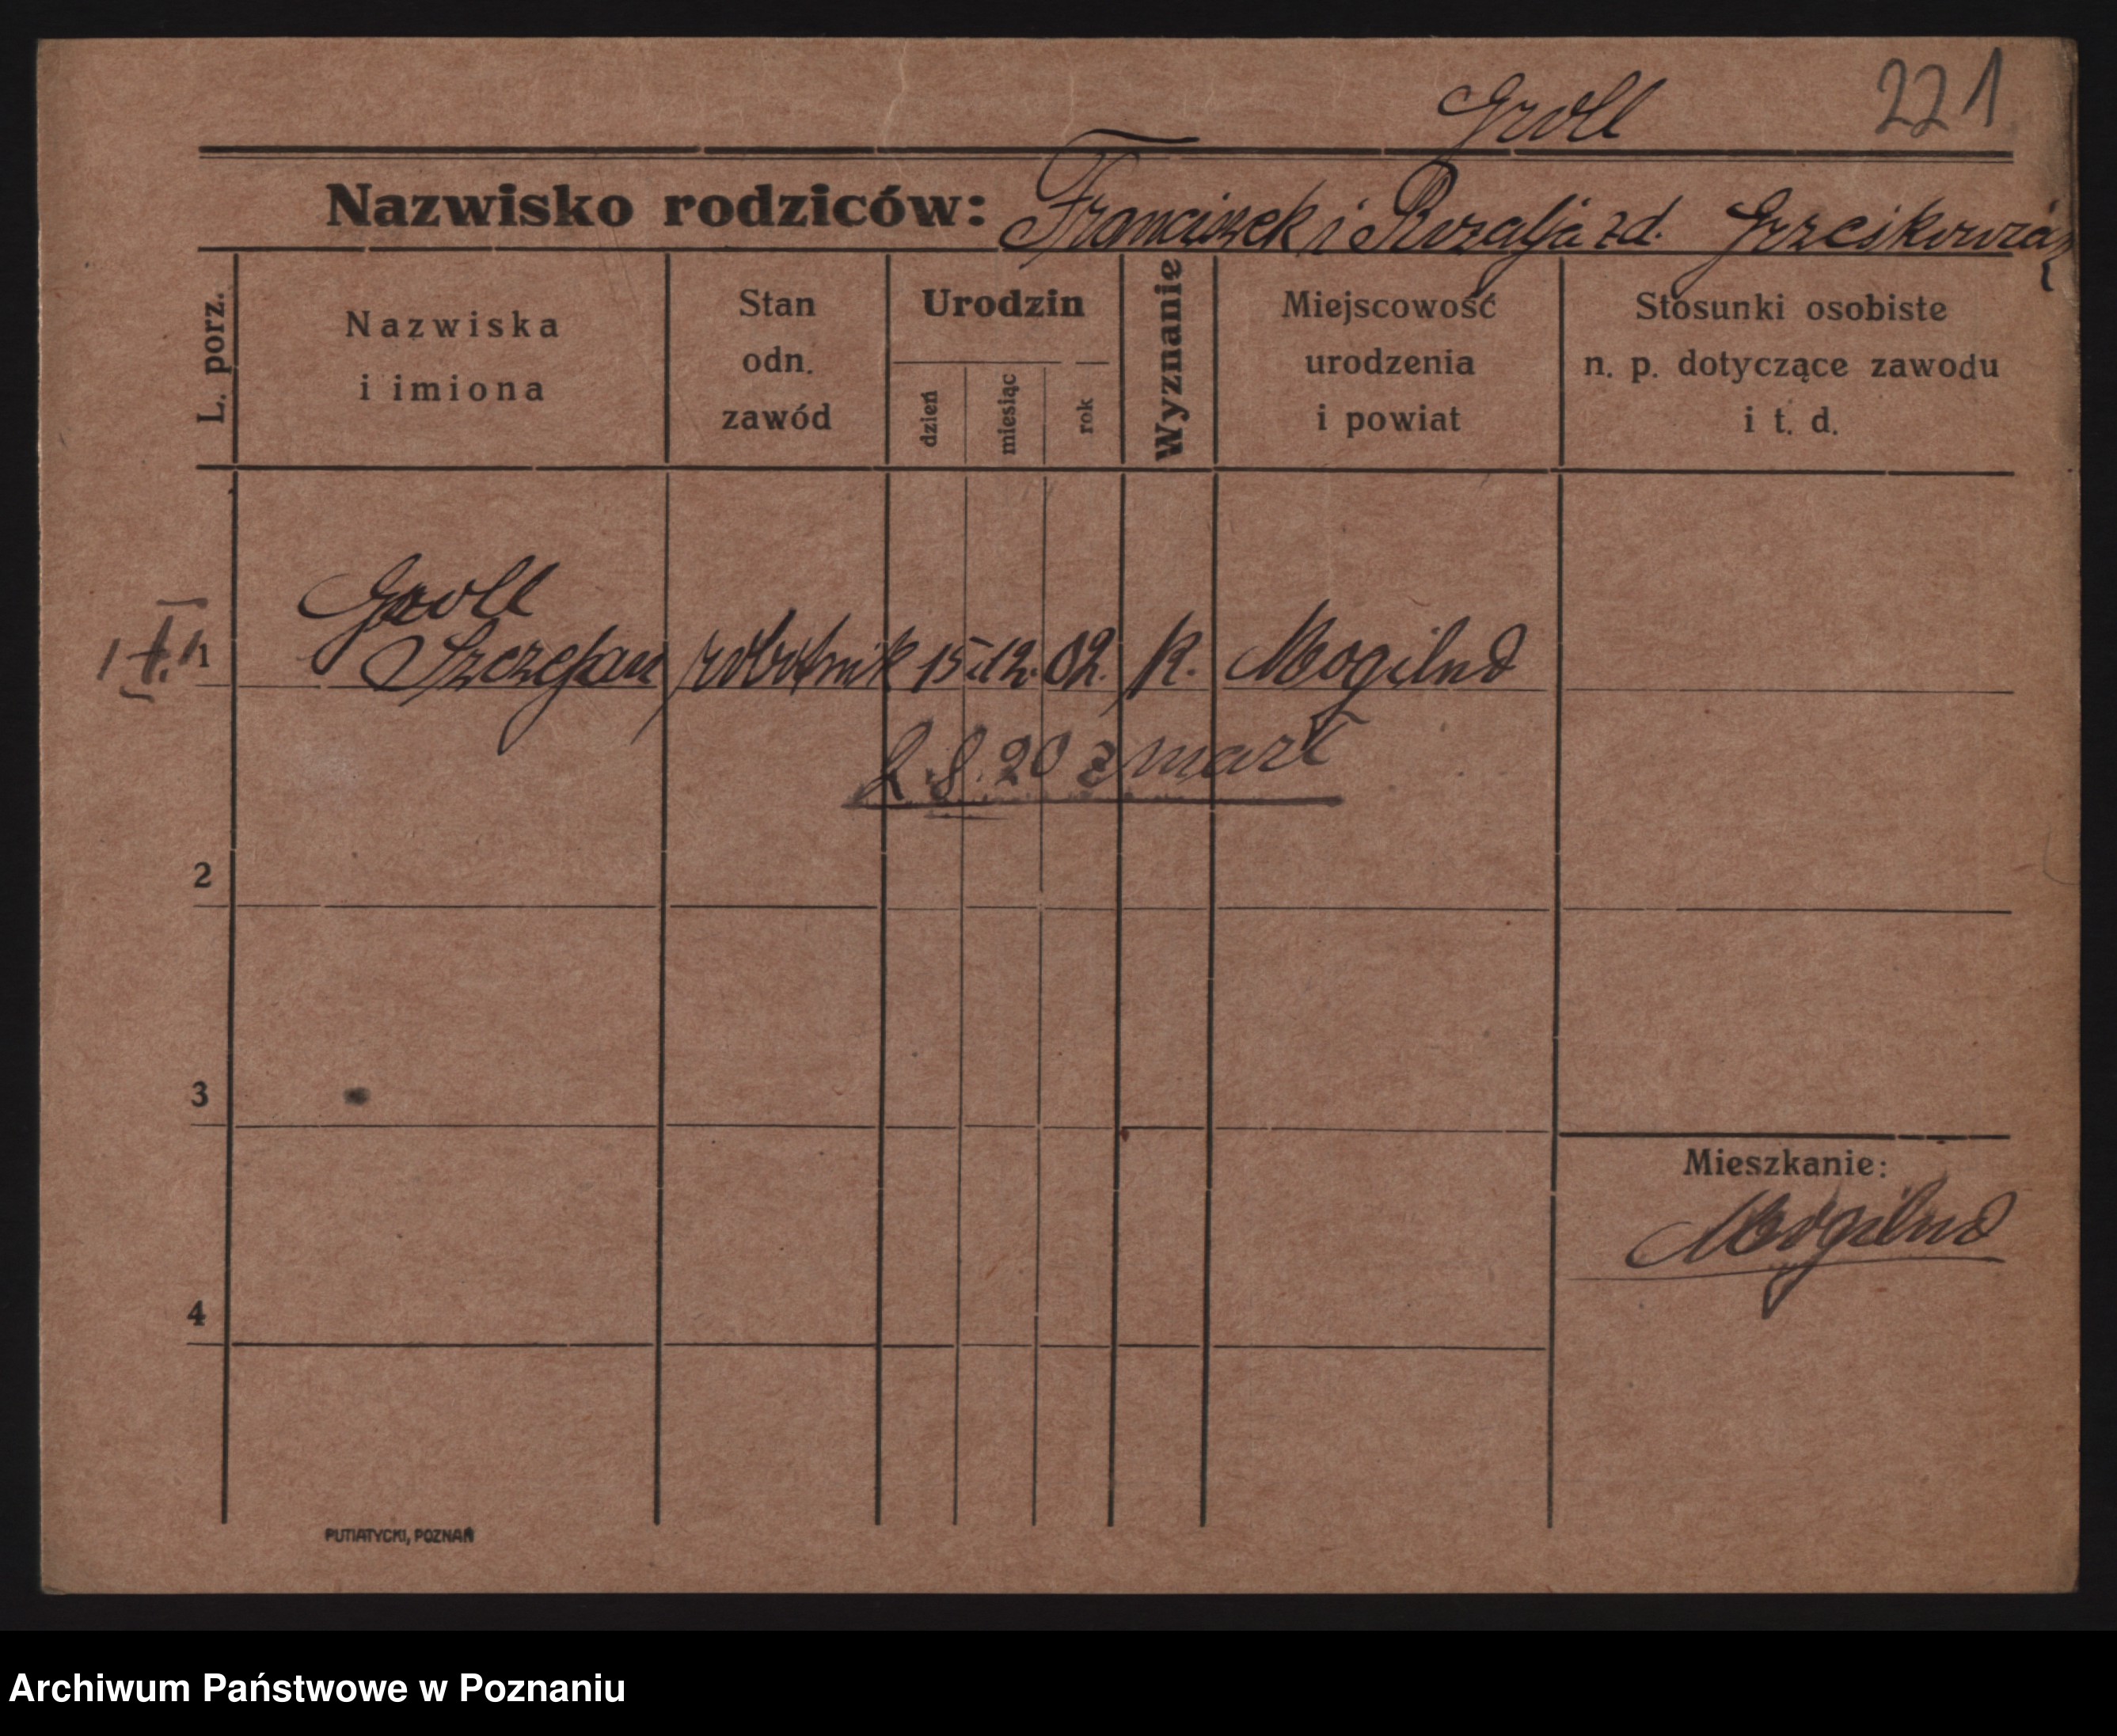 Groll 221
Nazwisko rodziców: Franciszek i Rozalja zd.
L. porz.
Nazwiska
i imiona
Stan
odn.
zawód
Urodzin
dzień
miesiąc
rok
Wyznanie
Miejscowość
urodzenia
i powiat
Stosunki osobiste
n. p. dotyczące zawodu
i t. d.
Groll
1 Szczepan robotnik 15. 12. 02. k. Mogilno
2. 8. 20 zmarł
2
3
Mieszkanie:
Mogilno
4
PUTIATYCKI, POZNAŃ
Archiwum Państwowe w Poznaniu